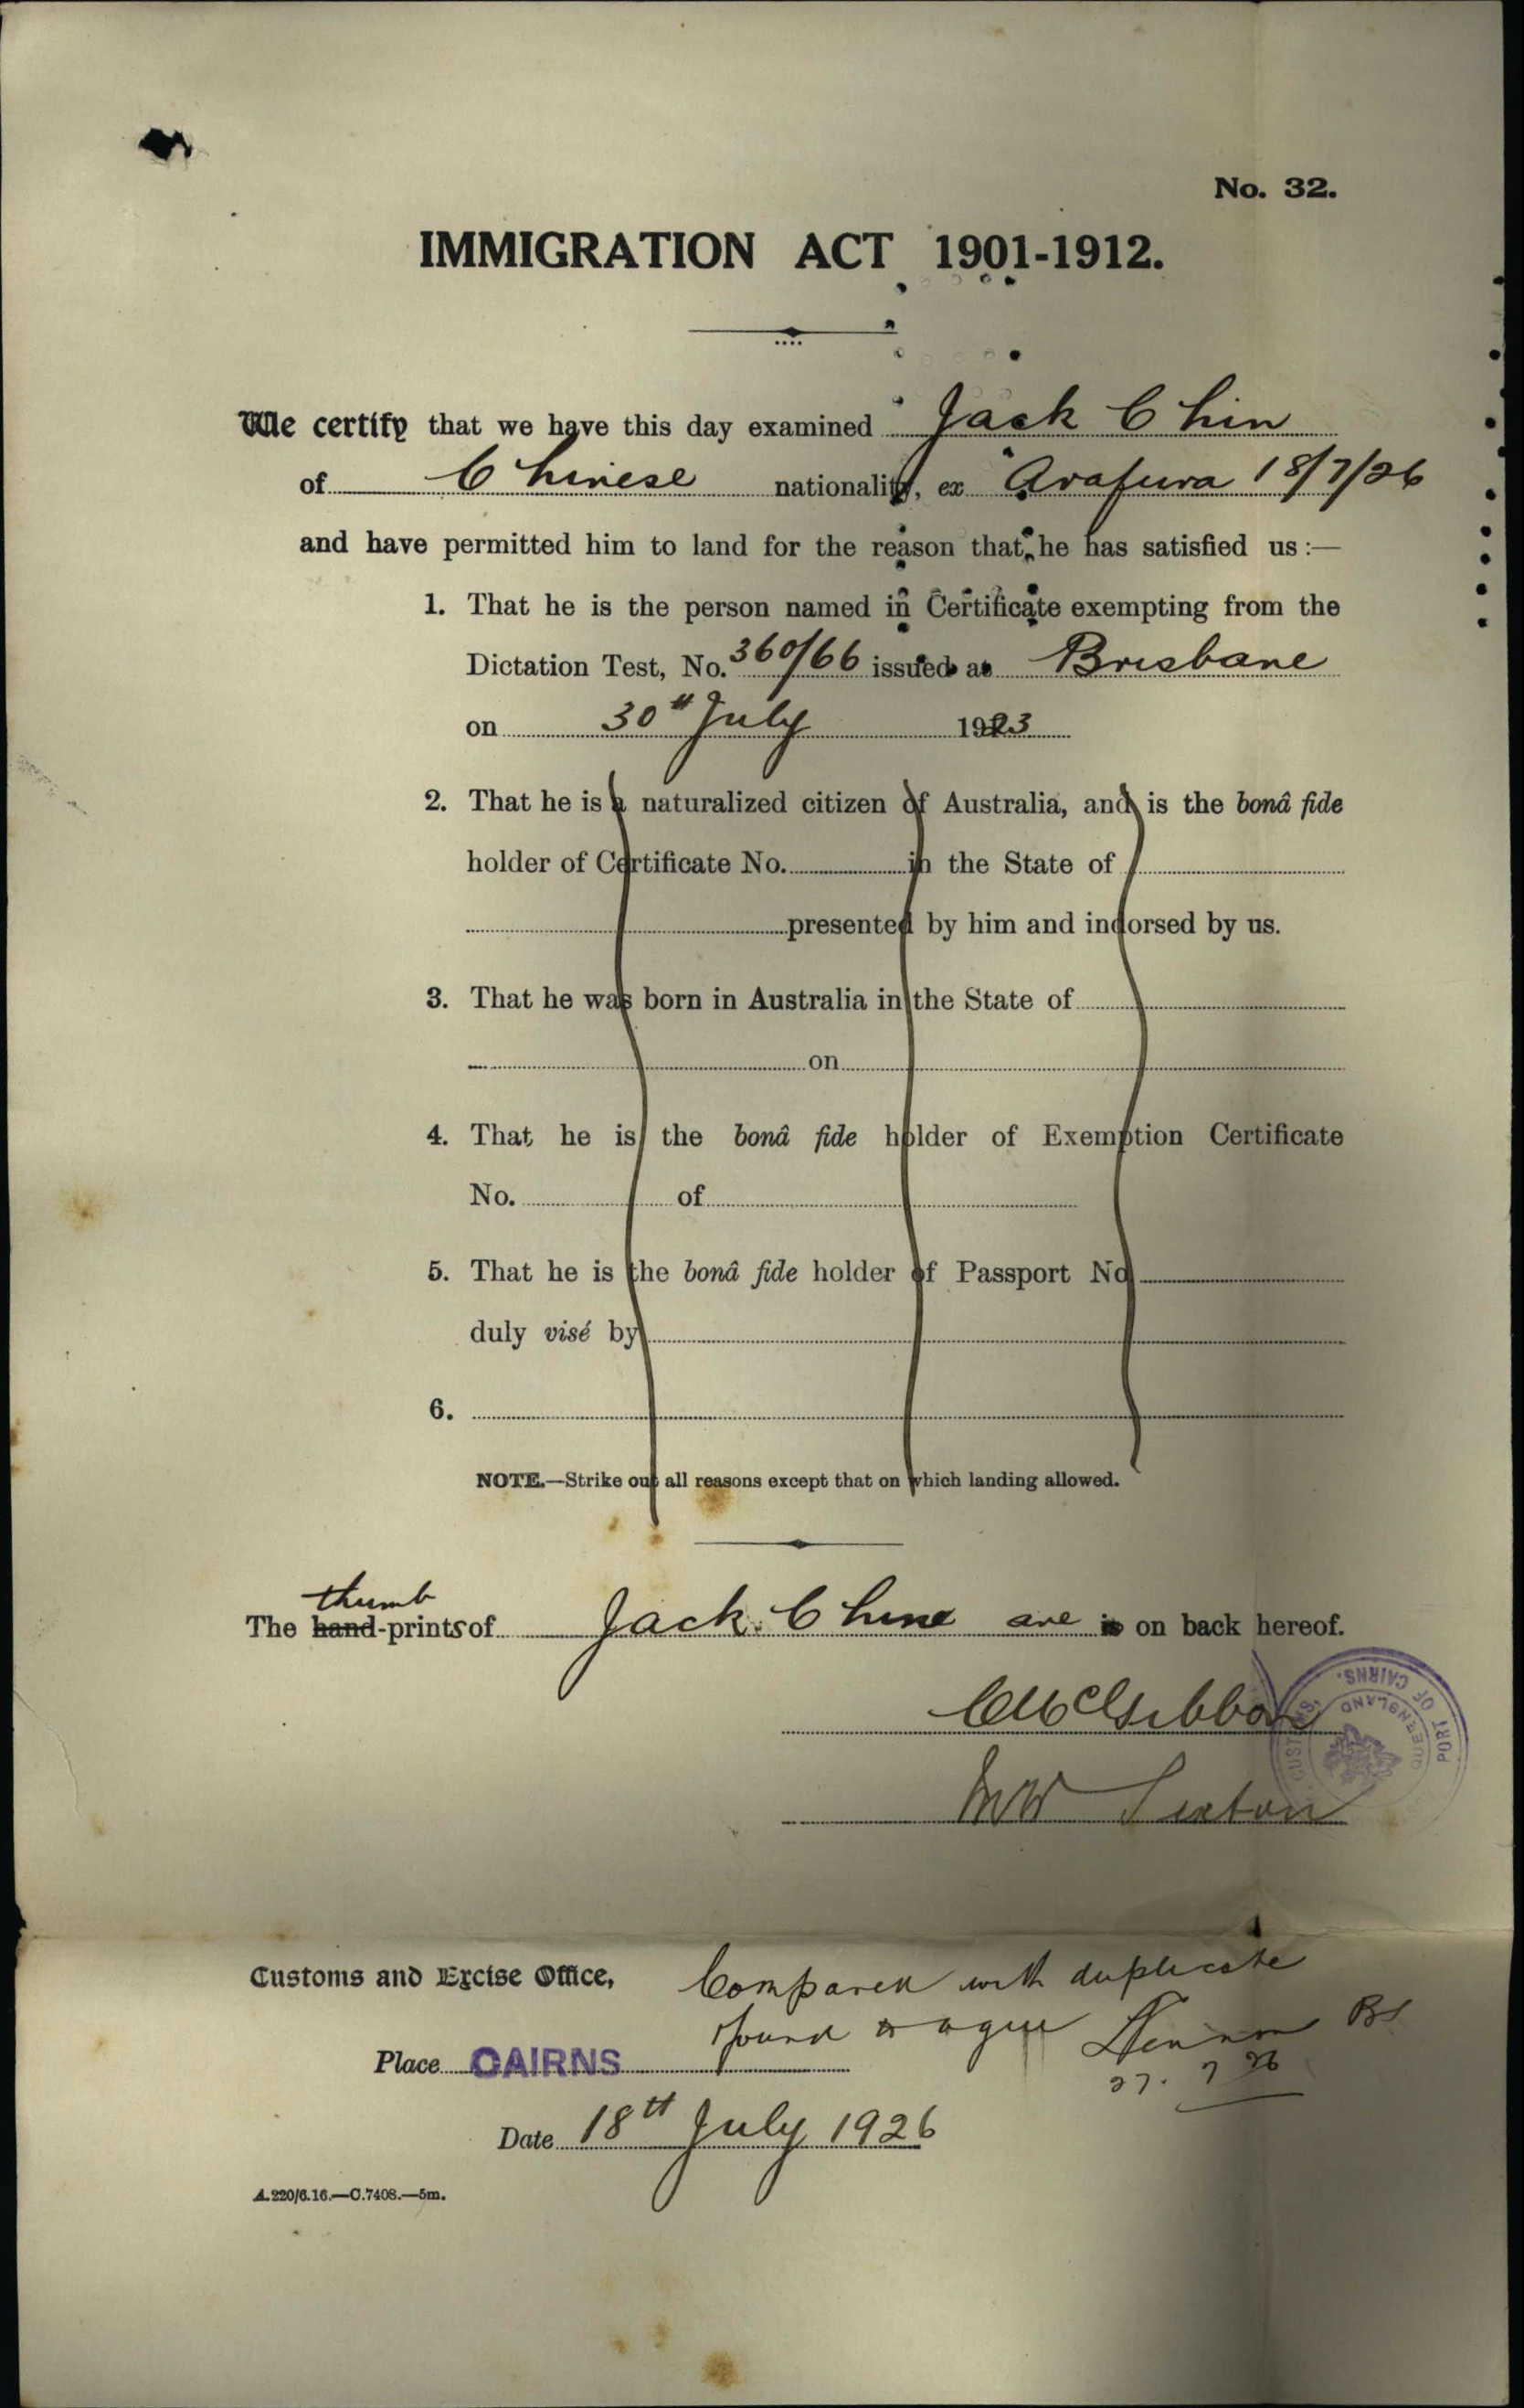 No. 32.
IMMIGRATION ACT 1901-1912.
We certify that we have this day examined Jack Chin
of Chinese nationality, ex "Arafura 18/7/26
and have permitted him to land for the reason that he has satisfied us :—
1. That he is the person named in Certificate exempting from the
Dictation Test, No. 360/66 issued at Brisbane
on 30th July 1923
2. That he is a naturalized citizen of Australia, and is the bonâ fide
holder of Certificate No. in the State of
presented by him and indorsed by us.
3. That he was born in Australia in the State of
on
4. That he is the bonâ fide holder of Exemption Certificate
No. of
5. That he is the bonâ fide holder of Passport No
duly visé by
6.
NOTE.—Strike out all reasons except that on which landing allowed.
thumb
The hand-prints of Jack Chine are is on back hereof.
CMcGibbon
MW Sexton
CUSTOMS. PORT OF CAIRNS.
QUEENSLAND
Customs and Excise Office,
Compared with duplicate
found to agree
BS
Place CAIRNS
27. 7 26
Date 18th July 1926
A.220/6.16.—C.7408.—5m.